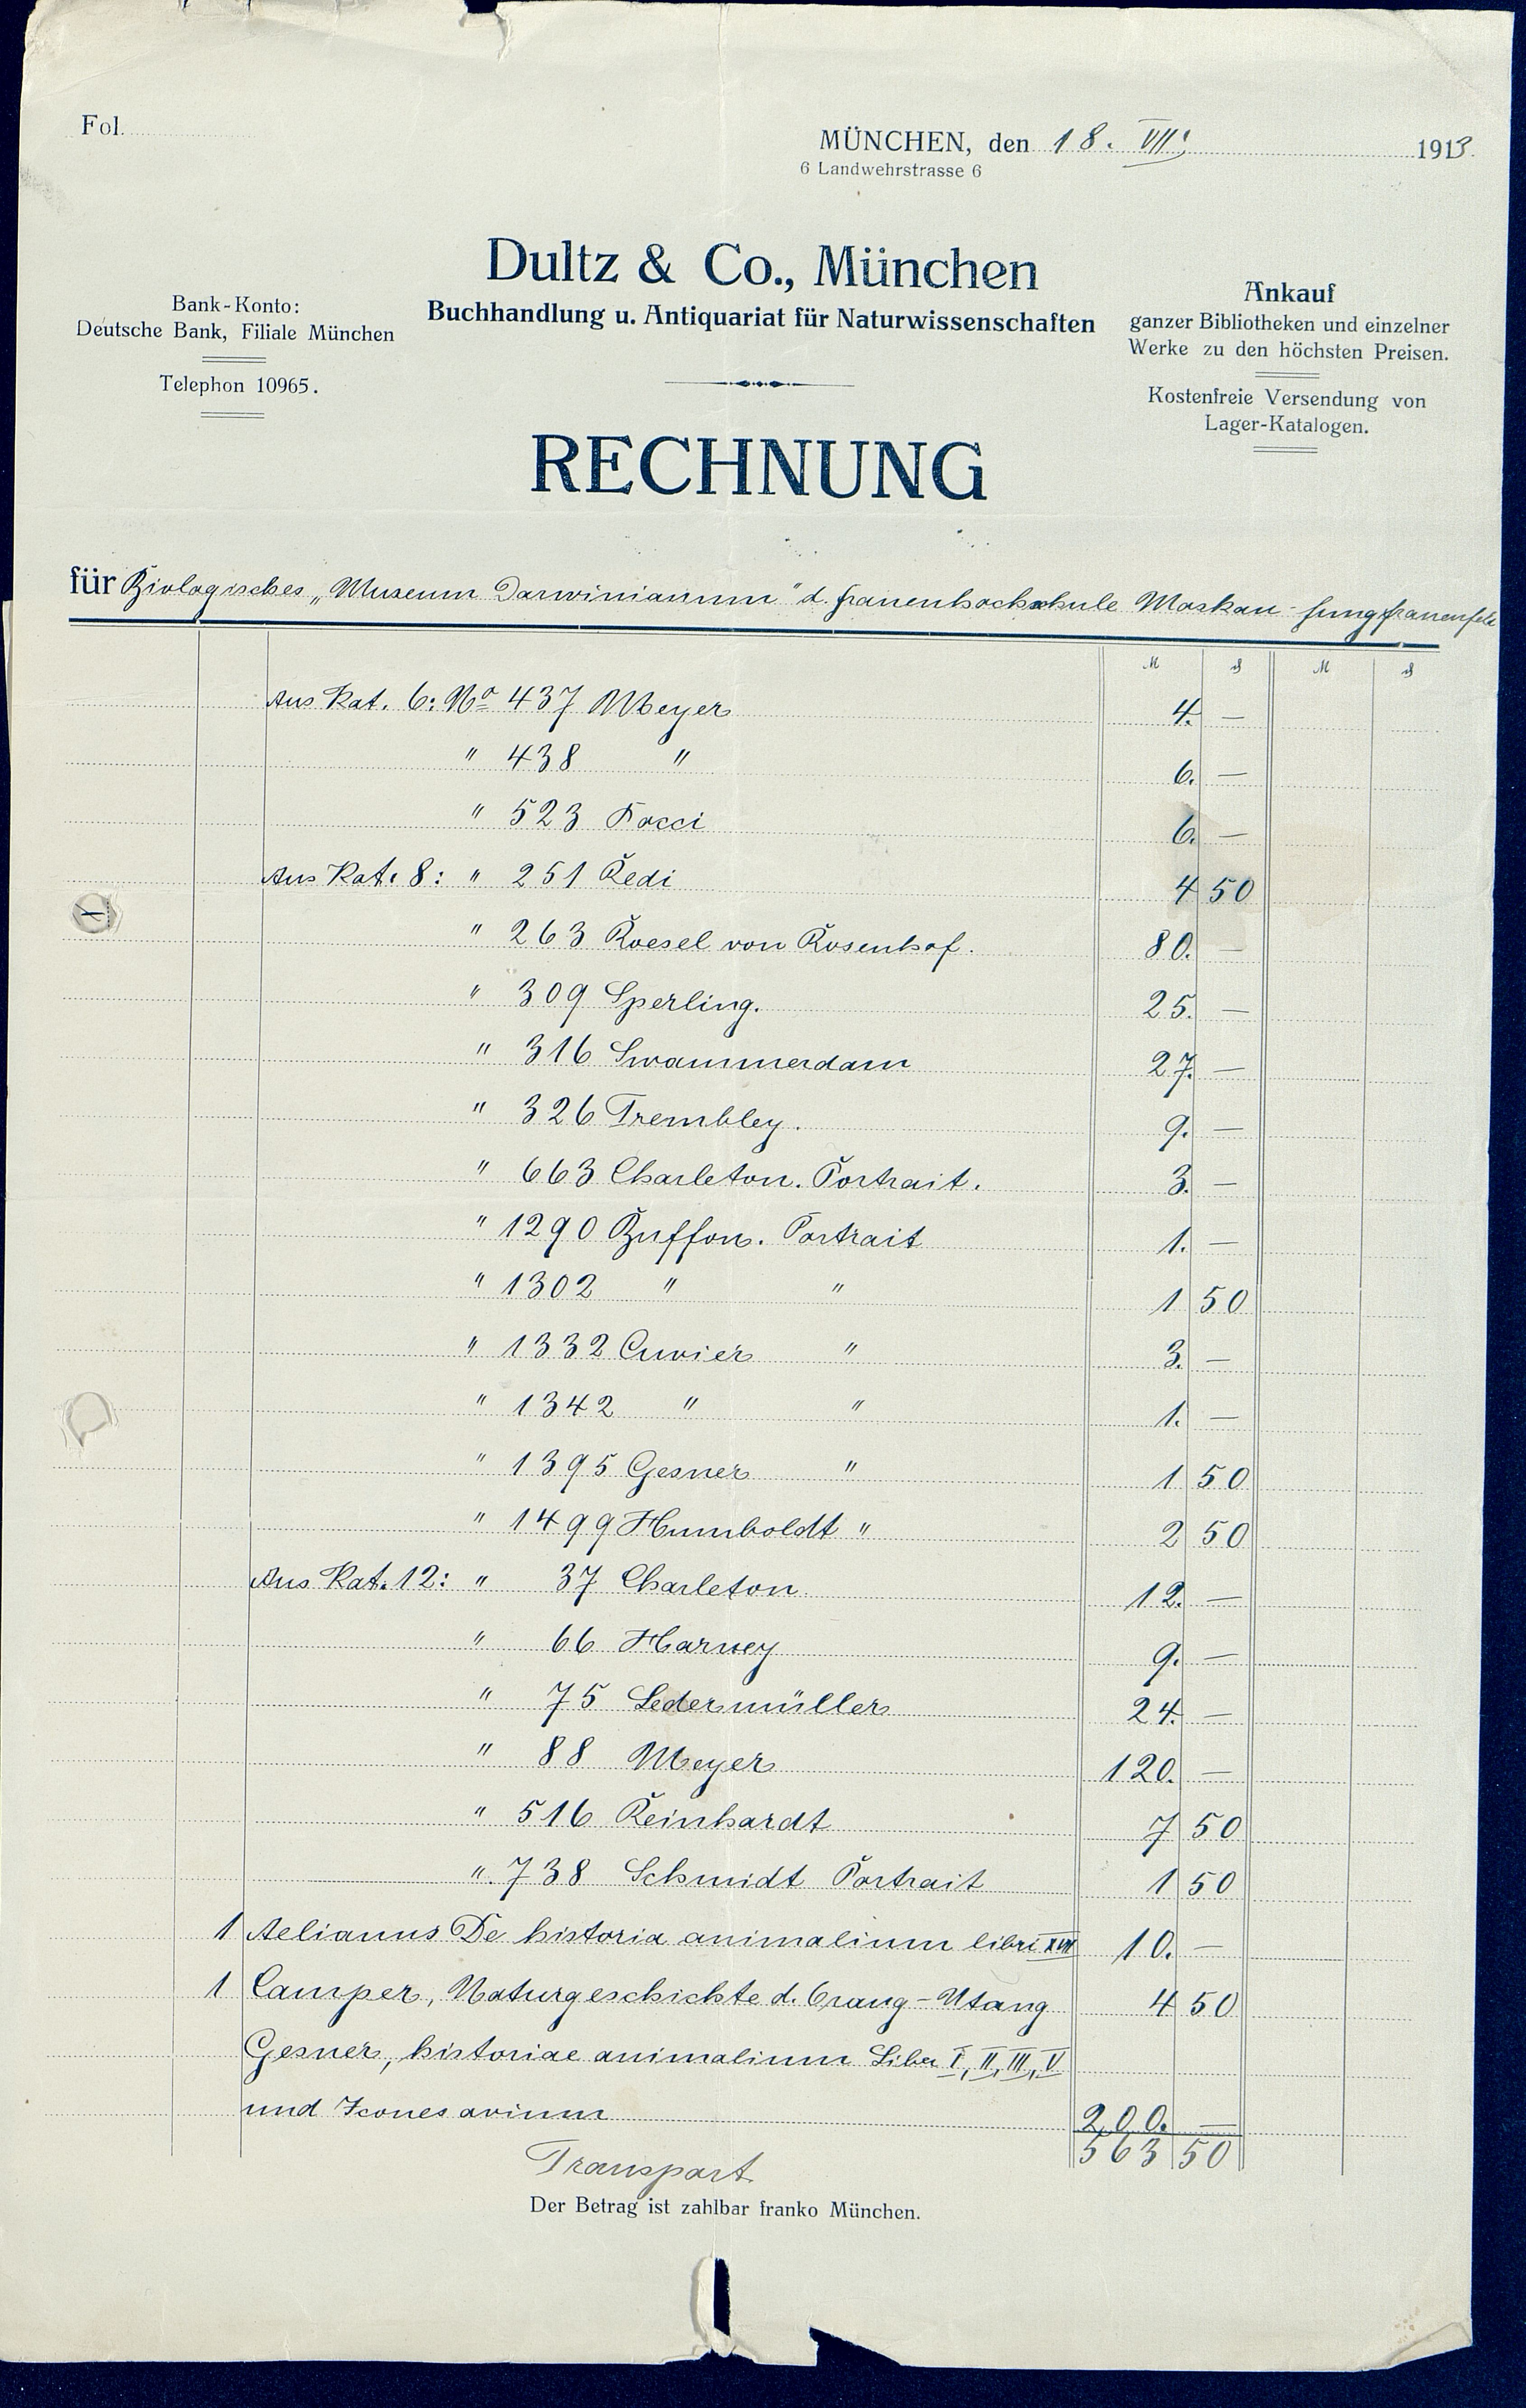 Fol.
MÜNCHEN, den 18. VII. 1913.
6 Landwehrstrasse 6
Dultz & Co., München
Buchhandlung u. Antiquariat für Naturwissenschaften
Bank-Konto:
Deutsche Bank, Filiale München
Telephon 10965.
Ankauf
ganzer Bibliotheken und einzelner
Werke zu den höchsten Preisen.
Kostenfreie Versendung von
Lager-Katalogen.
RECHNUNG
für Biologisches „Museum Darwinianum" d. Frauenhochschule Moskau - Jungfrauenfeld
M ₰ M ₰
Aus Kat. 6: No 437 Meyer 4. —
" 438 " 6. —
" 523 Kocci 6. —
Aus Kat. 8: " 251 Redi 4 50
" 263 Roesel von Rosenhof. 80. —
" 309 Sperling. 25. —
" 316 Swammerdam 27. —
" 326 Trembley. 9. —
" 663 Charleton. Portrait. 3. —
" 1290 Buffon. Portrait 1. —
" 1302 " " 1 50
" 1332 Cuvier " 3. —
" 1342 " " 1. —
" 1395 Gesner " 1 50
" 1499 Humboldt " 2 50
Aus Kat. 12: " 37 Charleton 12. —
" 66 Harvey 9. —
" 75 Ledermüller 24. —
" 88 Meyer 120. —
" 516 Reinhardt 7 50
" 738 Schmidt Portrait 1 50
1 Aelianus De historia animalium libri XVII 10. —
1 Camper, Naturgeschichte d. Orang-Utang 4 50
Gesner, historiae animalium Liber I, II, III, V
und Icones avium 200. —
Transport 563 50
Der Betrag ist zahlbar franko München.